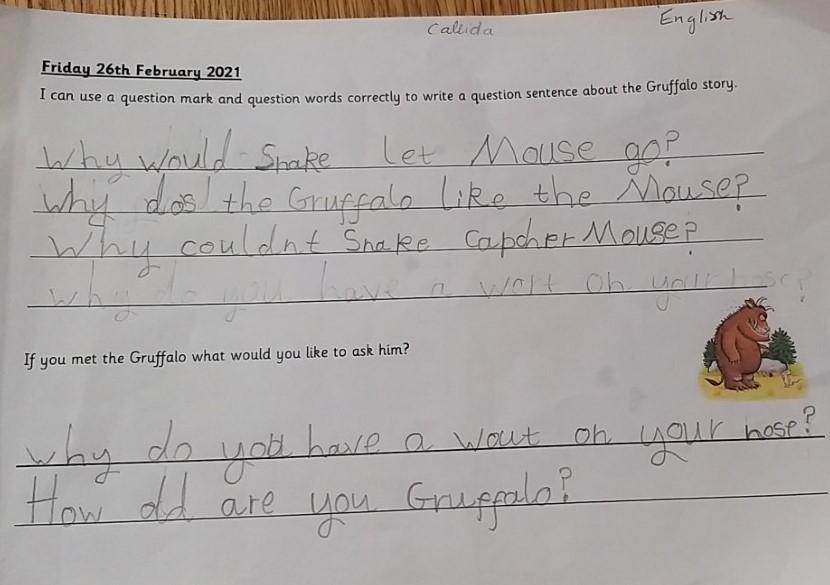 Callida
English
Friday 26th February 2021
I can use a question mark and question words correctly to write a question sentence about the Gruffalo story.
Why would Snake let Mouse go?
why dos the Gruffalo like the Mouse?
Why couldnt Snake Capcher Mouse?
why do you have a wort on your nose?
If you met the Gruffalo what would you like to ask him?
why do you have a wout on your nose?
How old are you Gruffalo?